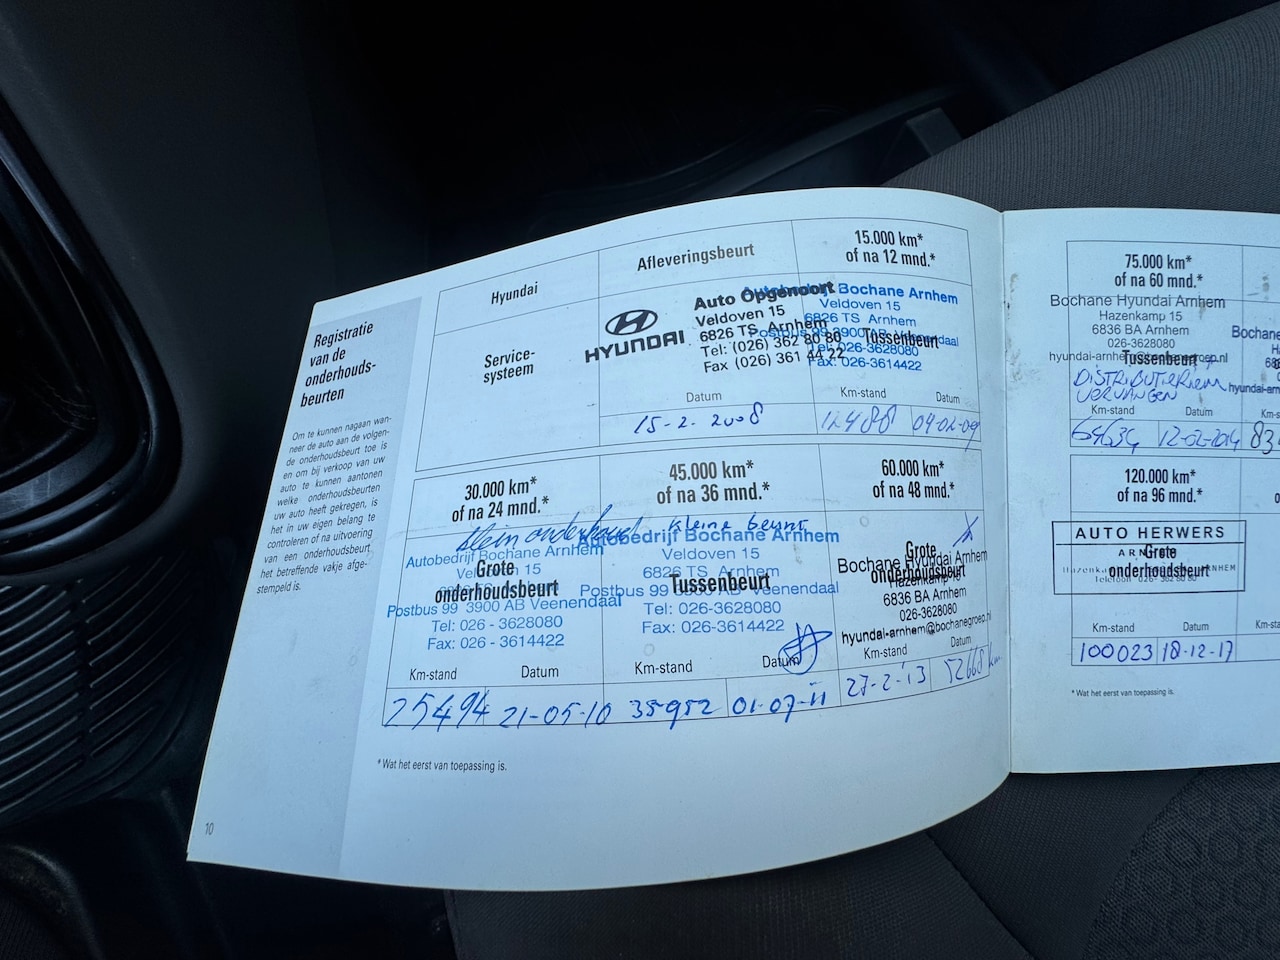 Registratie
van de
onderhouds-
beurten
Om te kunnen nagaan wan-
neer de auto aan de volgen-
de onderhoudsbeurt toe is
en om bij verkoop van uw
auto te kunnen aantonen
welke onderhoudsbeurten
uw auto heeft gekregen, is
het in uw eigen belang te
controleren of na uitvoering
van een onderhoudsbeurt
het betreffende vakje afge-
stempeld is.
Hyundai
Service-
systeem
Afleveringsbeurt
HYUNDAI
Auto Opgenoort
Veldoven 15
6826 TS Arnhem
Tel: (026) 362 80 80
Fax (026) 361 44 22
Datum
15-2-2008
15.000 km*
of na 12 mnd.*
Autobedrijf Bochane Arnhem
Veldoven 15
6826 TS Arnhem
Postbus 99 3900 AB Veenendaal
Tussenbeurt
Tel: 026-3628080
Fax: 026-3614422
Km-stand
Datum
12488
04-02-09
30.000 km*
of na 24 mnd.*
klein onderhoud
Autobedrijf Bochane Arnhem
Veldoven 15
Grote
onderhoudsbeurt
Postbus 99 3900 AB Veenendaal
Tel: 026 - 3628080
Fax: 026 - 3614422
Km-stand
Datum
25494
21-05-10
45.000 km*
of na 36 mnd.*
kleine beurt
Autobedrijf Bochane Arnhem
Veldoven 15
6826 TS Arnhem
Tussenbeurt
Postbus 99 3900 AB Veenendaal
Tel: 026-3628080
Fax: 026-3614422
Km-stand
Datum
35952
01-07-11
60.000 km*
of na 48 mnd.*
Grote
Bochane Hyundai Arnhem
onderhoudsbeurt
Hazenkamp 15
6836 BA Arnhem
026-3628080
hyundai-arnhem@bochanegroep.nl
Km-stand
Datum
27-2-'13
52668 km
*Wat het eerst van toepassing is.
10
75.000 km*
of na 60 mnd.*
Bochane Hyundai Arnhem
Hazenkamp 15
6836 BA Arnhem
026-3628080
Tussenbeurt
DISTRIBUTIERIEM
VERVANGEN
Km-stand
Datum
64634
12-02-2014
Bochane
hyundai-arn
120.000 km*
of na 96 mnd.*
AUTO HERWERS
ARNHEM
Grote
onderhoudsbeurt
Telefoon 026-362 80 80
Km-stand
Datum
100023
18-12-17
Km-sta
*Wat het eerst van toepassing is.